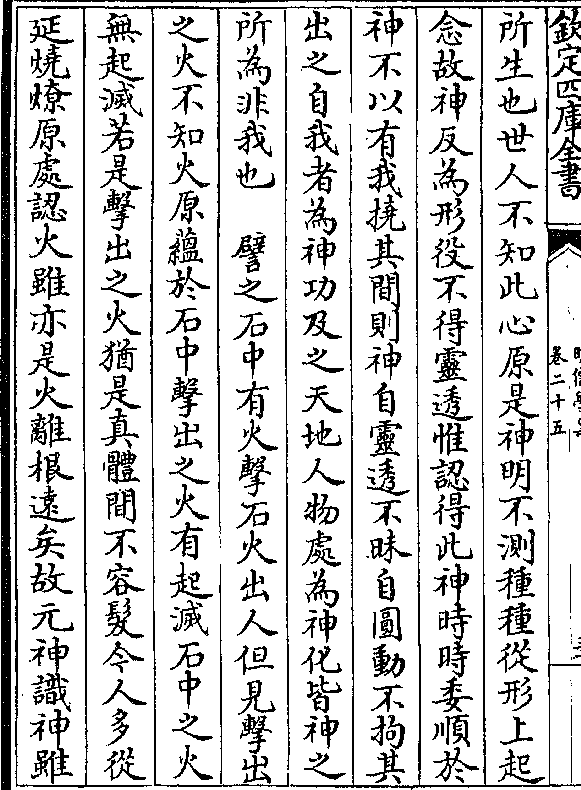 欽定四庫全書
卷二十五
所生也世人不知此心原是神明不測種種從形上起
念故神反為形役不得靈透惟認得此神時時委順於
神不以有我撓其間則神自靈透不昧自圓動不拘其
出之自我者為神功及之天地人物處為神化皆神之
所為非我也　譬之石中有火擊石火出人但見擊出
之火不知火原蘊於石中擊出之火有起滅石中之火
無起滅若是擊出之火猶是真體間不容髮今人多從
延燒燎原處認火雖亦是火離根遠矣故元神識神雖